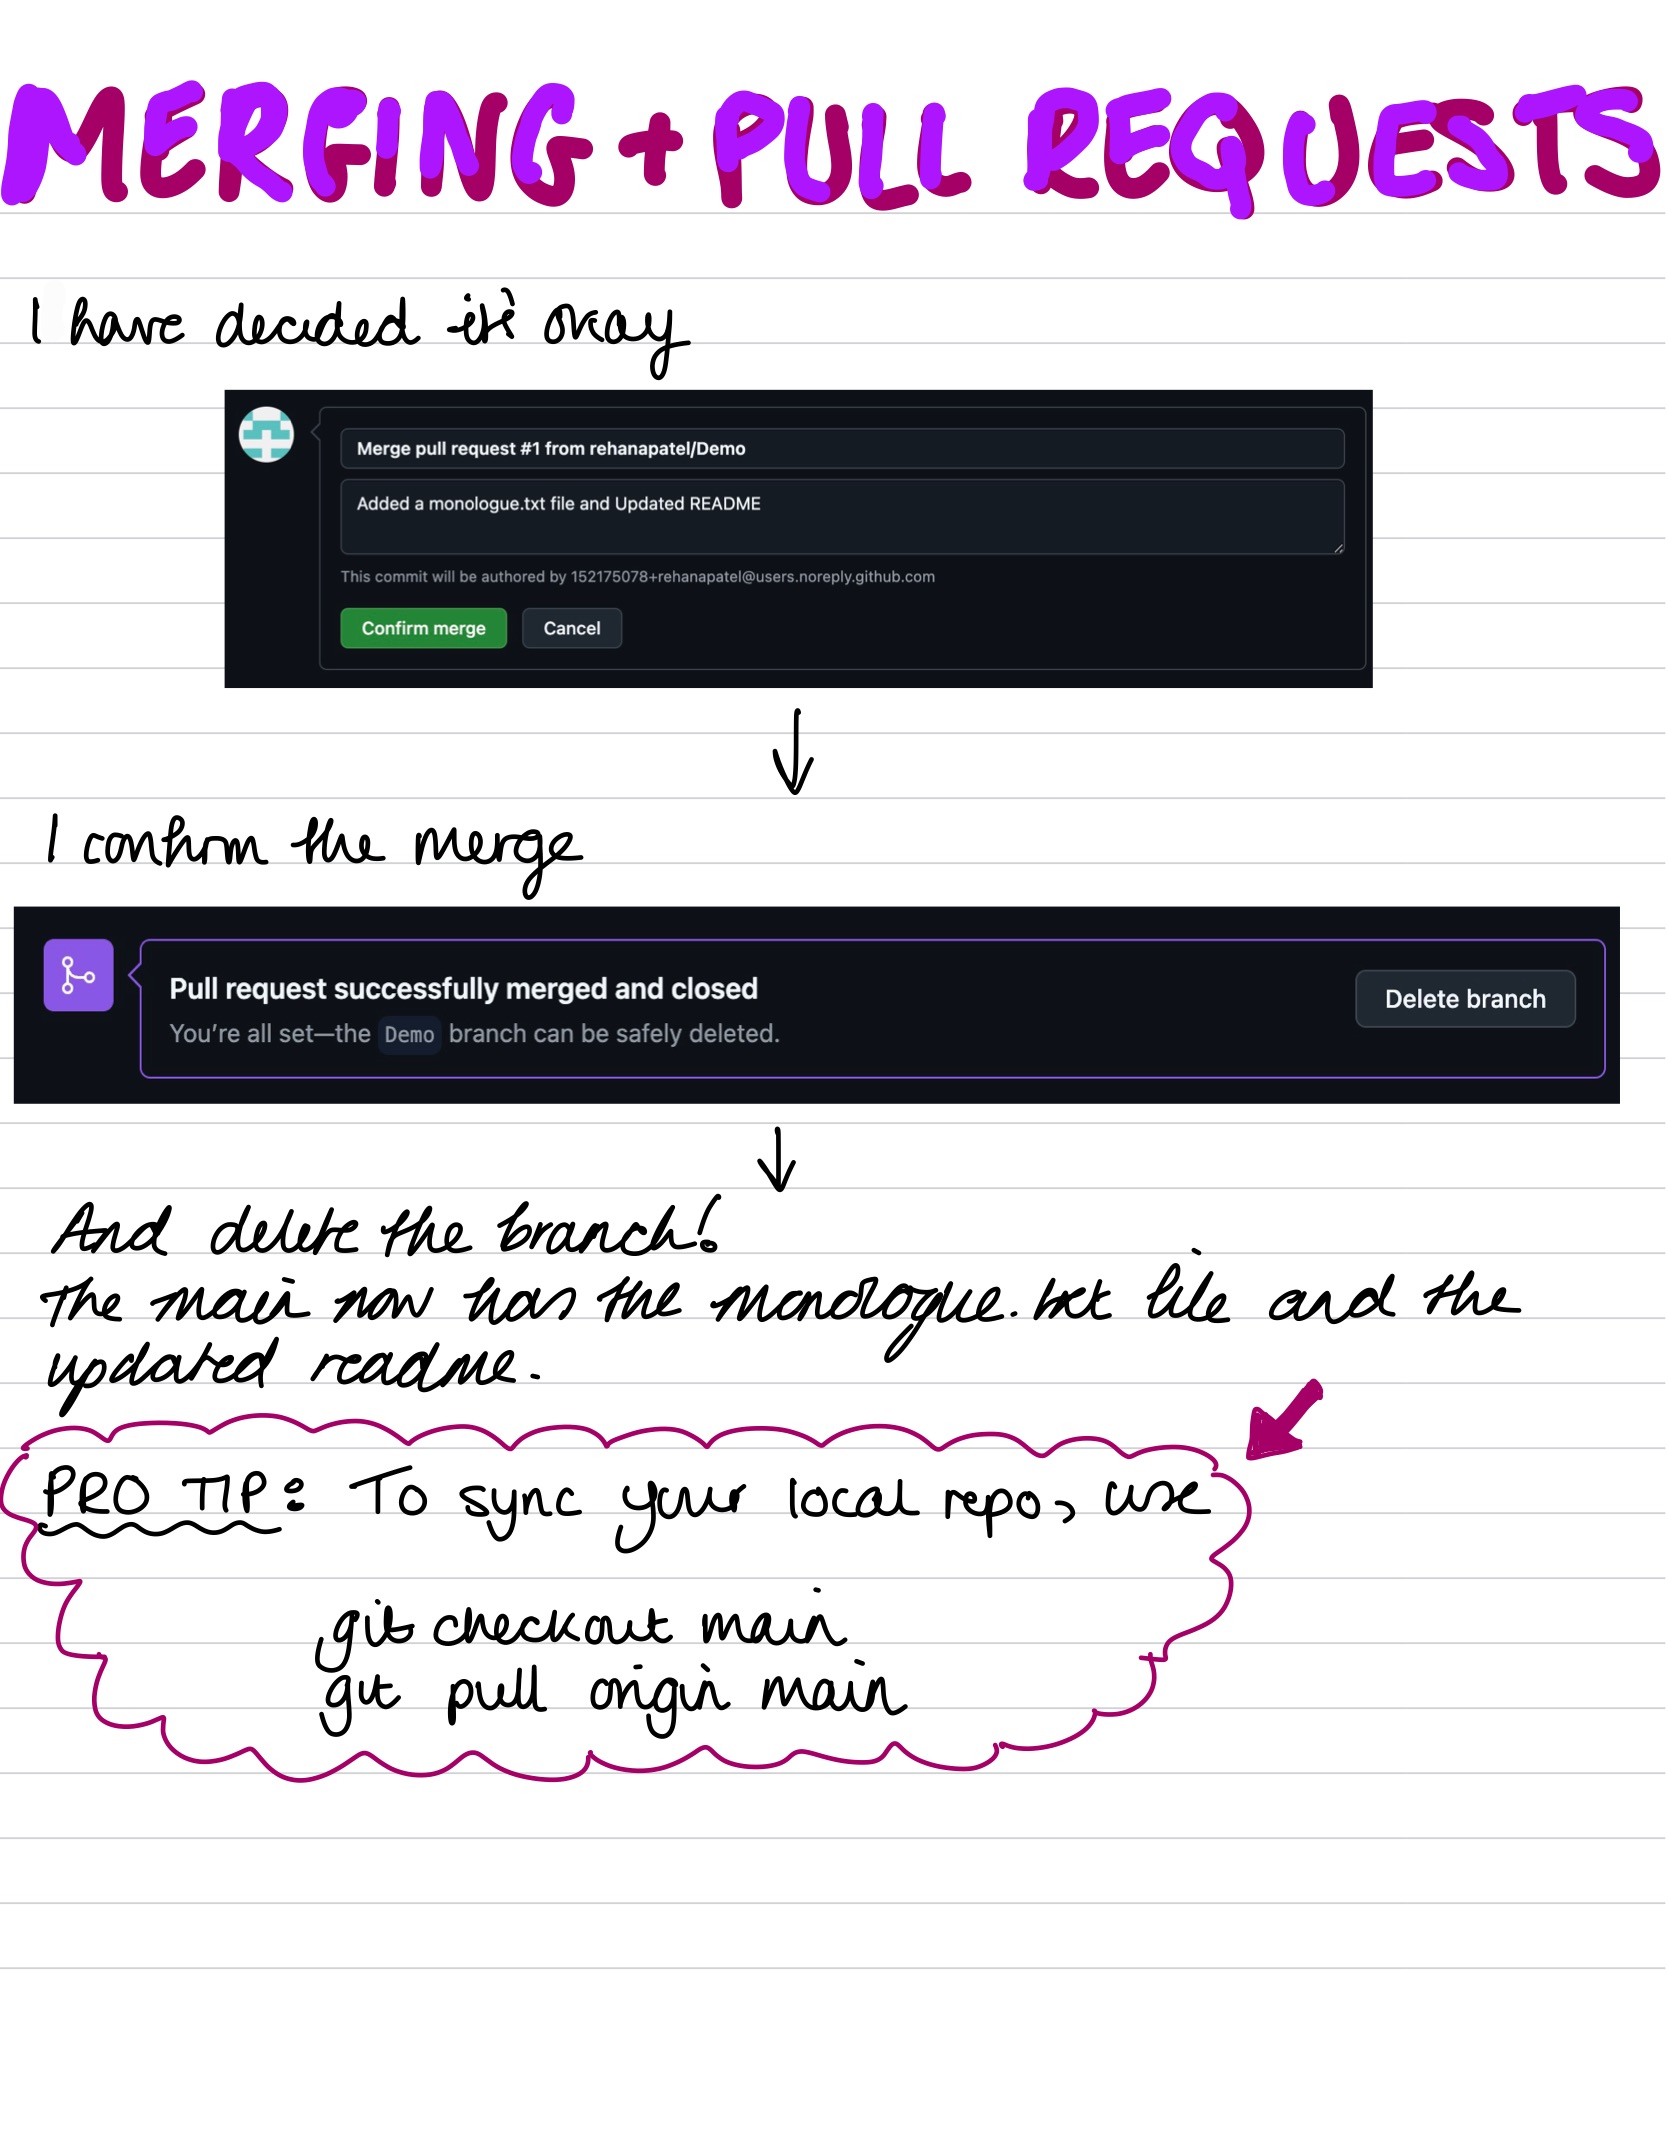 MERGING + PULL REQUESTS
I have decided it's okay
Merge pull request #1 from rehanapatel/Demo
Added a monologue.txt file and Updated README
This commit will be authored by 152175078+rehanapatel@users.noreply.github.com
Confirm merge Cancel
I confirm the merge
Pull request successfully merged and closed
You're all set—the Demo branch can be safely deleted.
Delete branch
And delete the branch!
The main now has the monologue.txt file and the
updated readme.
PRO TIP: To sync your local repo, use
git checkout main
git pull origin main